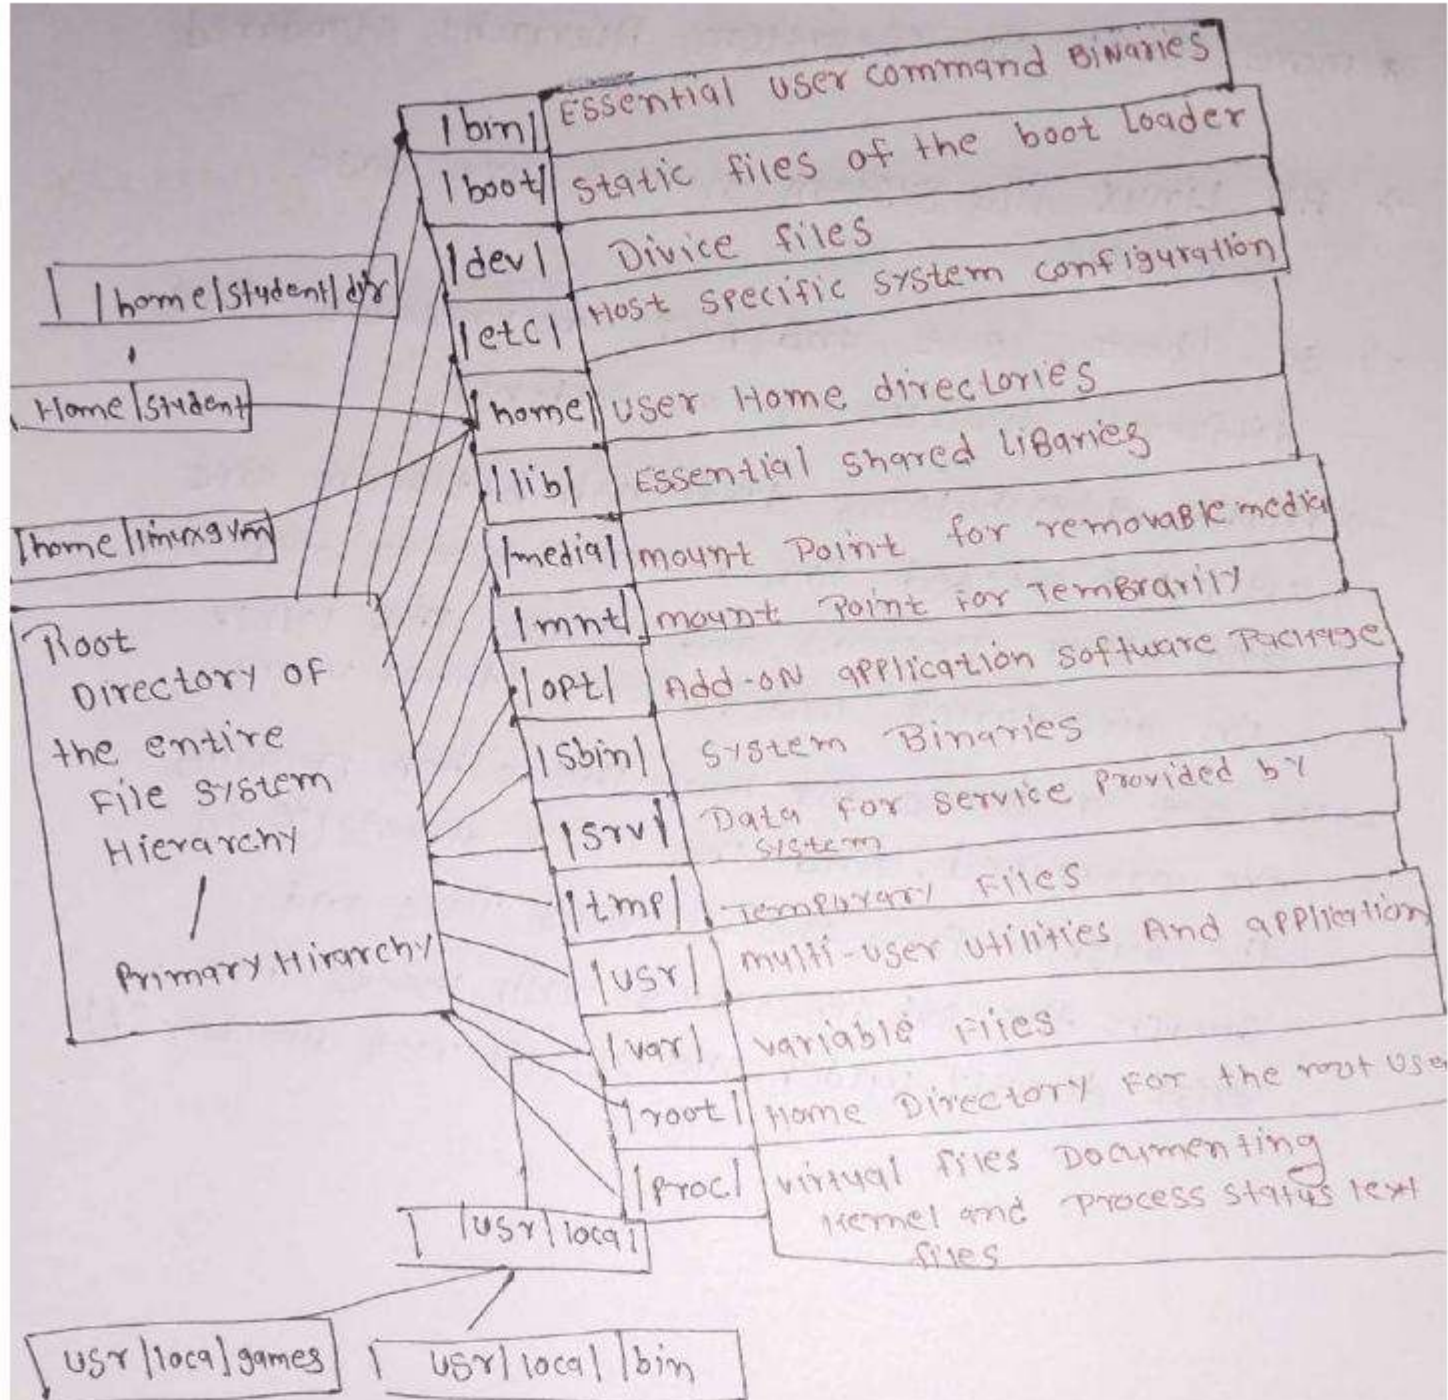 /bin/ Essential user command BiNaries
/boot/ static files of the boot loader
/dev/ Divice files
/etc/ Host specific system configuration
/home/student/dir
Home/student
/home/ user Home directories
/lib/ Essential shared LiBaries
/home/
/media/ mount Point for removaBle media
/mnt/ mount Point For TemBrarily
/opt/ Add-oN application software Package
/sbin/ system Binaries
/srv/ Data for service Provided by
system
/tmp/ Temporary Files
/usr/ multi-user utilities And application
/var/ variable Files
/root/ Home Directory For the root Use
/proc/ virtual files Documenting
kernel and Process status text
files
Root
Directory OF
the entire
File System
Hierarchy
/
Primary Hirarchy
/usr/local/
usr/local games
usr/local/bin